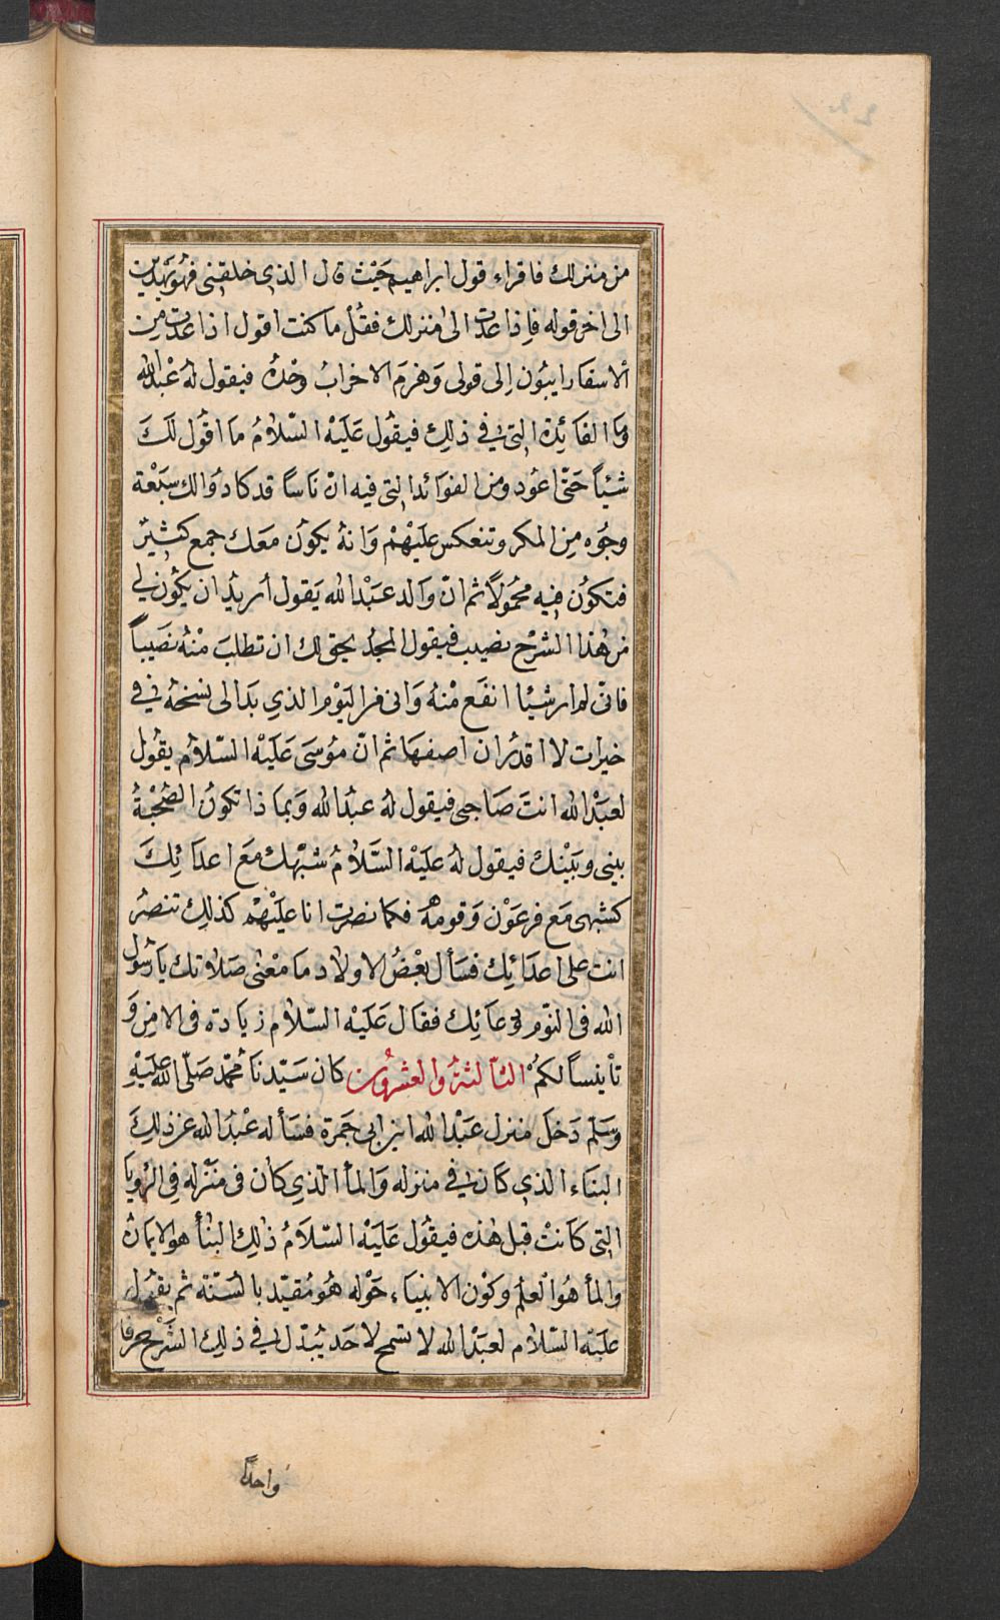 من منزلك فاقراء قول ابراهيم حَيْث قال الذى خلقنى فهُو يَهْدين
الى اخر قوله فإذا عدت الى منزلك فقُل ما كنت اقول اذا عدت من
الاسفار ايبُون إلى قولى وَهزمَ الاحزابُ وحْدهُ فيقول لهُ عبْدالله
وما الفائِدة التى فى ذلِك فيقُول عَلَيْه السّلامُ ما اقُول لكَ
شيْأً حَتّى اعُود ومن الفوَائد التى فيه انّ نَاسًا قد كادُوَا لك سَبْعة
وجُوه مِن المكر وتنعكس عليْهمْ وَانهُ يكوُن مَعَك جمع كثيرٌ
فتكوُن فيه محمُولاً ثم انّ وَالد عبَدْ الله يَقول أريدُ ان يكُون لي
من هٰذا الشرْح نصيب فيقول لمجدُ يحق لك ان تطلبَ منْهُ نصَيباً
فانّى لم ار شيْا انفَع منْهُ وَانى من اليَوْم الذي بدَا لى نسْخهُ فى فى
خيرات لا اقدُر ان اصفهَا ثم انّ موُسَى عَلَيْه السّلامُ يقوُل
لعَبْدالله انتَ صَاحبى فيقول لهُ عبدُالله وَبماذا تكونُ الصُّحْبَةُ
بينى وبَيْنك فيقول لهُ علَيْه السَّلامُ شبهْك مَع اعدَائِكَ
كشبهى مَع فرعَوْن وَقومه فكما نصرت انا عليْهمْ كذلِك تنصرُ
انت على اعدَائِك فسَأل بعْضُ الاولاد ما معْنى صَلاتك يَا رسُول
الله فى النوّم لدعَائِك فقال عَلَيْه السّلام زيَادة فى الامن وَ
تأنيسًا لكُمْ الثالثةُ والعشرُون كان سَيّدنَا مُحمّد صَلّى الله عَلَيْهِ
وسَلّم دَخلَ منزل عَبْد الله ابن ابى جَمرة فسَأله عبْدُ الله عن ذلِكَ
البنَاء الذى كان فى منزله وَالمأ الذى كان فى منْزله فى الرُويَا
التى كانتْ قبل هٰذه فيقُول عَلَيْه السّلاَمُ ذلِك البنأ هو الايمَانُ
والمأ هُوَ العِلم وكوْن الانبياء حَوْله هُو مُقيّد بالسُنّة ثم يقوُل
عليَه السّلام لعَبْدالله لا تسْمح لاحَد يُبدّل فى ذلِك الشَرْح حرفا
واحدًا